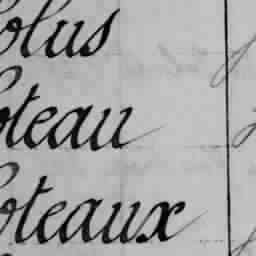 olus
oteau
oteaux